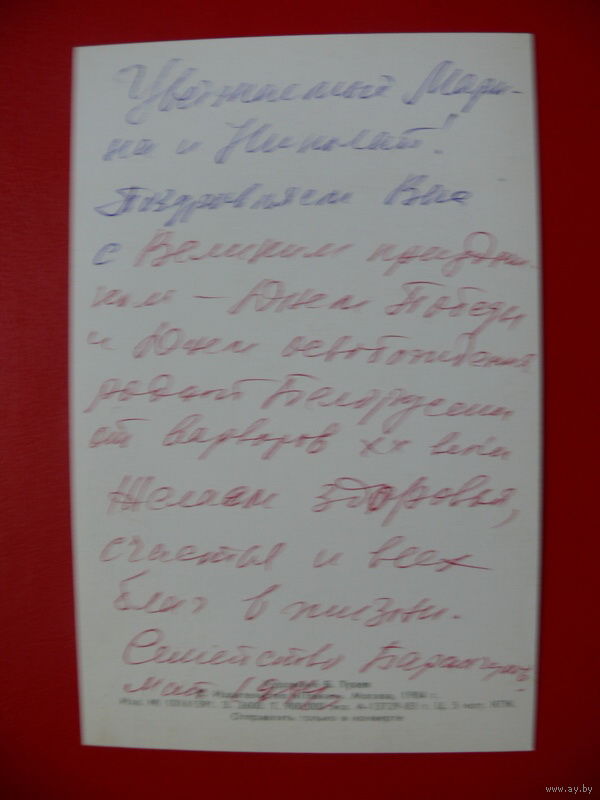 Уважаемый Мари-
на и Николай!
Поздравляем Вас
с Великим праздни-
ком – Днем Победы
и Днем освобождения
родной Белоруссии
от варваров XX века
Желаем здоровья,
счастья и всех
благ в жизни.
Семейство
май
Москва, 1984 г.
Отправлять только в конверте
www.ay.by